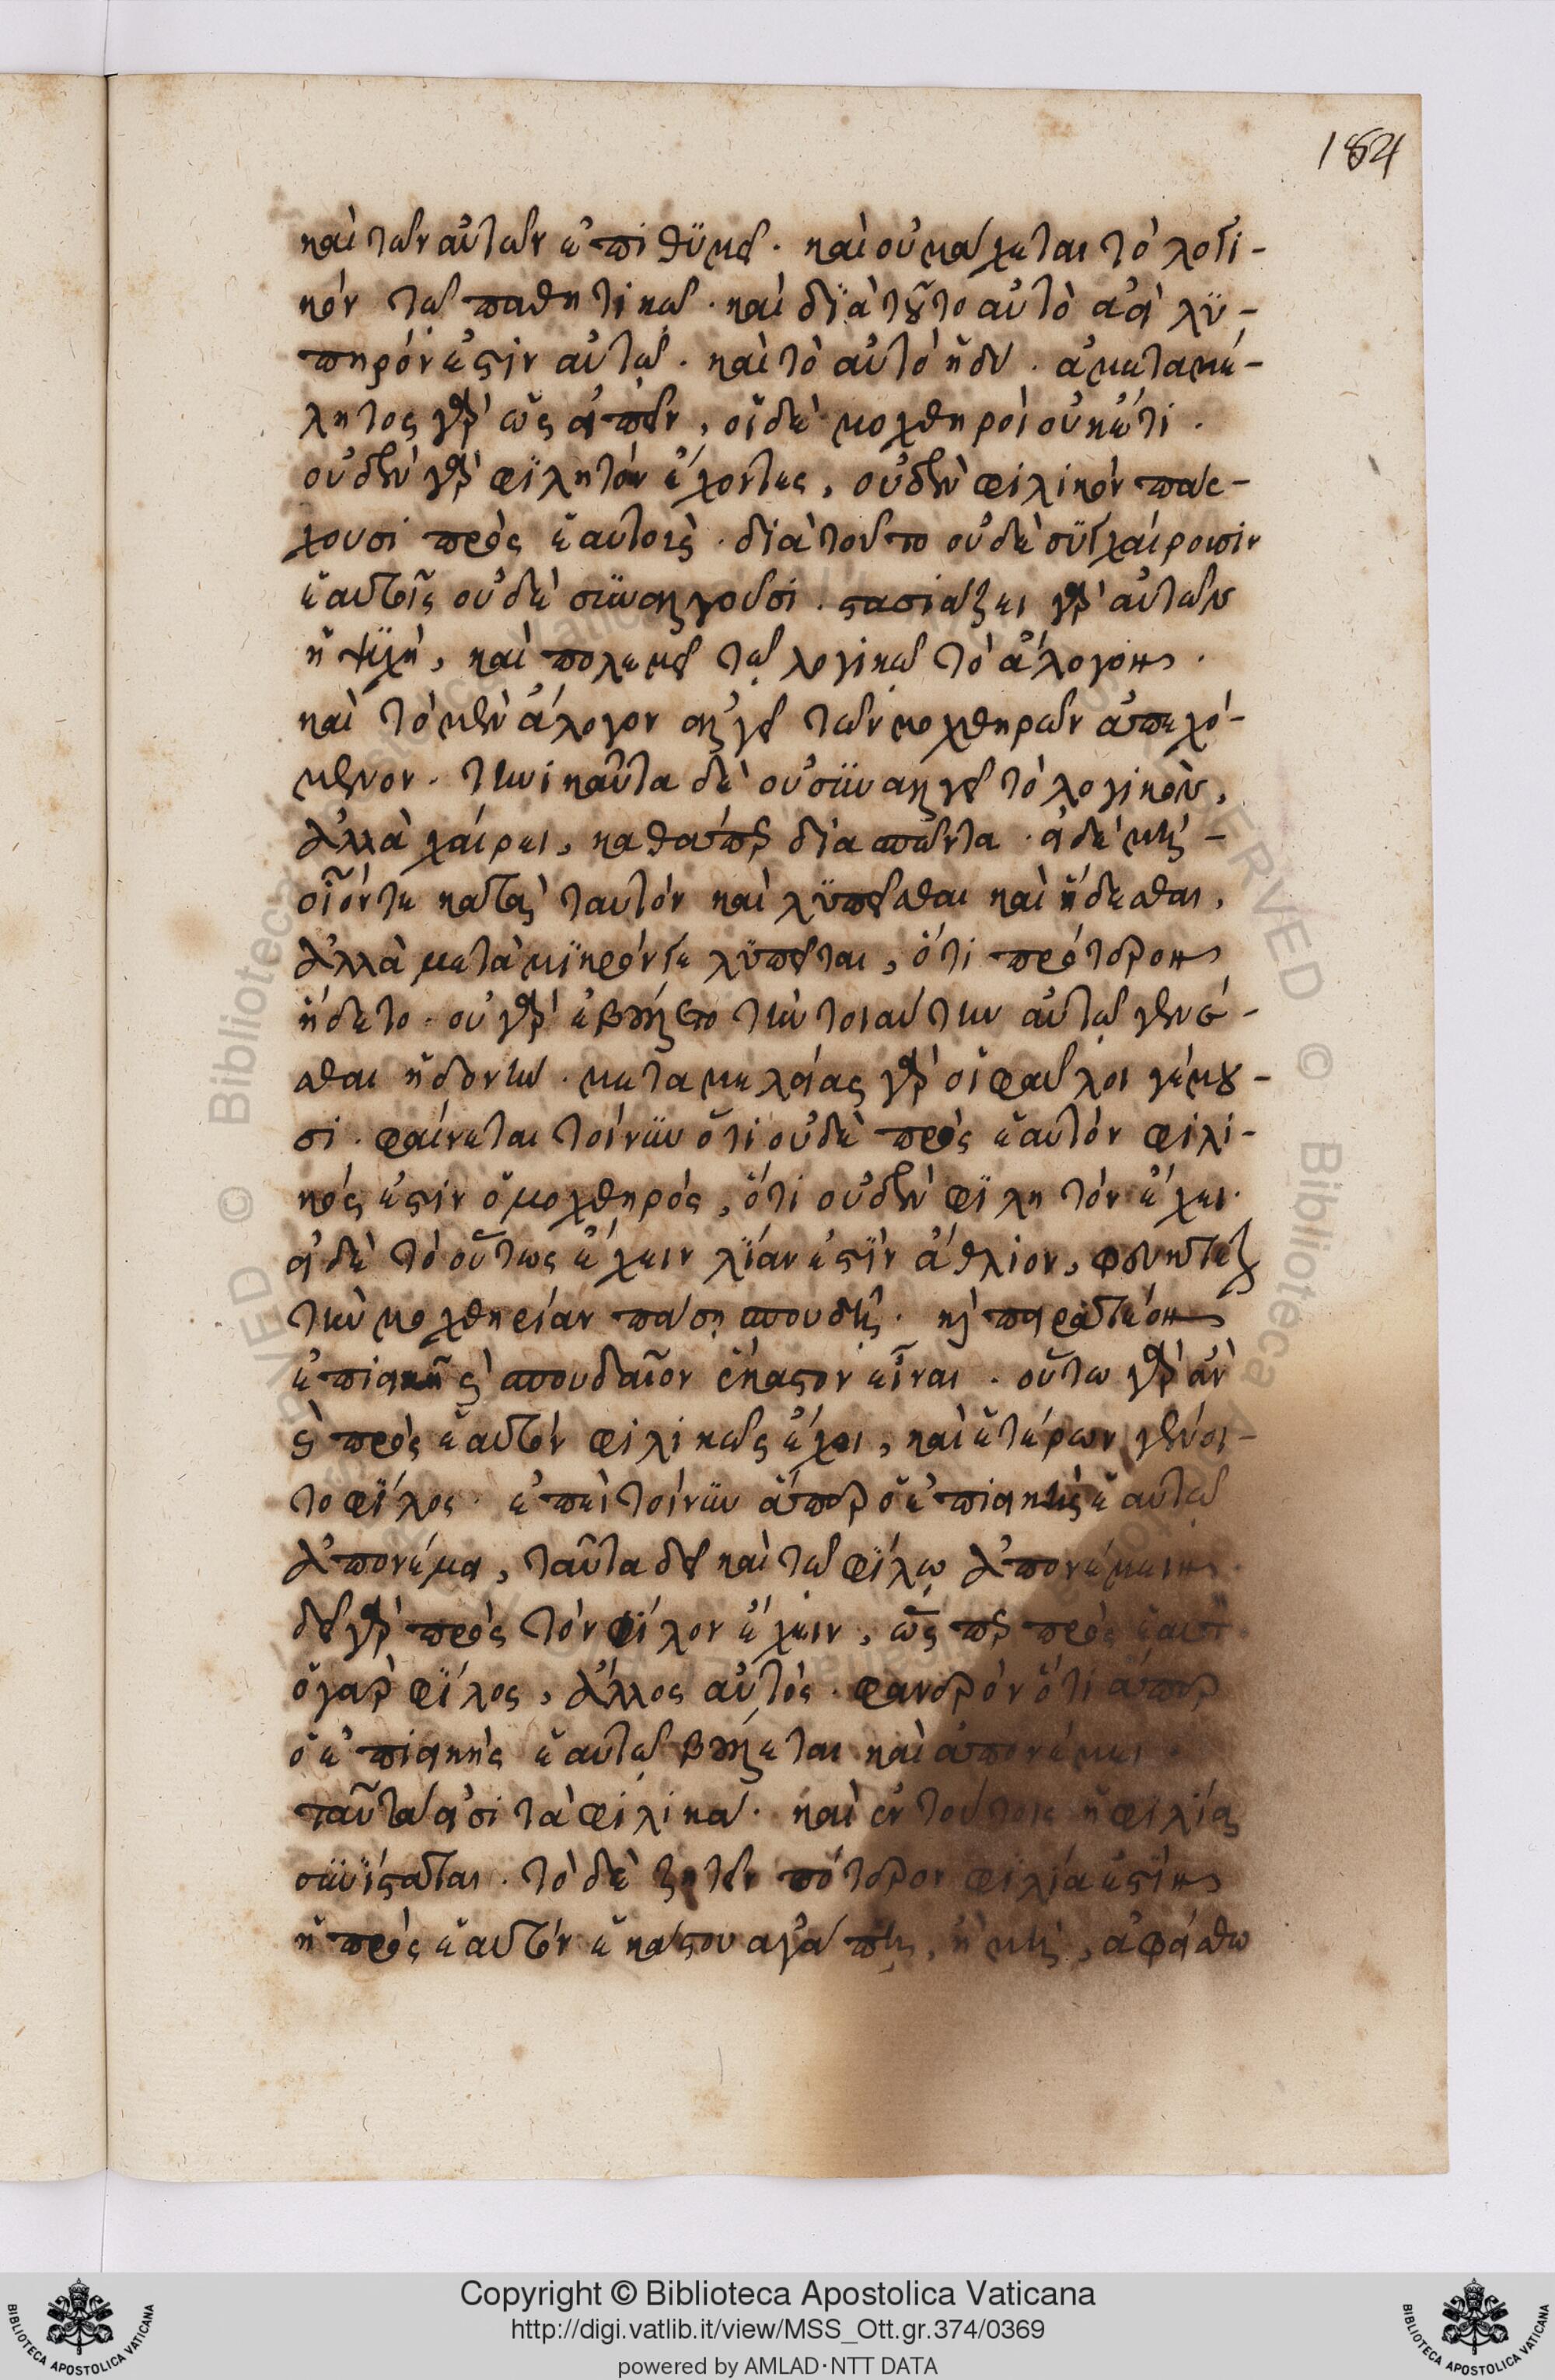 184
καὶ τῶν αὐτῶν ἐπιθυμεῖ. καὶ οὐ μάχεται τὸ λογι-
κὸν τῷ παθητικῷ. καὶ διὰ τοῦτο αὐτὸ ἀεὶ λυ-
πηρόν ἐστιν αὐτῷ. καὶ τὸ αὐτὸ ἡδύ. ἀμεταμέ-
λητος γὰρ ὡς εἰπεῖν, οἱ δὲ μοχθηροὶ οὐκέτι.
οὐδὲν γὰρ φιλητὸν ἔχοντες, οὐδὲν φιλικὸν πάσ-
χουσι πρὸς ἑαυτούς. διὰ τοῦτο οὐδὲ συγχαίρουσιν
ἑαυτοῖς οὐδὲ συναλγοῦσι. στασιάζει γὰρ αὐτῶν
ἡ ψυχή, καὶ πολεμεῖ τῷ λογικῷ τὸ ἄλογον.
καὶ τὸ μὲν ἄλογον ἀλγεῖ τῶν μοχθηρῶν ἀπεχό-
μενον. τηνικαῦτα δὲ οὐ συναλγεῖ τὸ λογικὸν,
ἀλλὰ χαίρει, καθάπερ διασπῶντα. εἰ δὲ μὴ
οἷόν τε κατὰ ταυτὸν καὶ λυπεῖσθαι καὶ ἥδεσθαι,
ἀλλὰ μετὰ μικρόν γε λυπεῖται, ὅτι πρότερον
ἥδετο. οὐ γὰρ ἐβούλετο τὴν τοιαύτην αὐτῷ γενέ-
σθαι ἡδονήν. μεταμελείας γὰρ οἱ φαῦλοι γέμου-
σι. φαίνεται τοίνυν ὅτι οὐδὲ πρὸς ἑαυτὸν φιλι-
κός ἐστιν ὁ μοχθηρός, ὅτι οὐδὲν φιλητὸν ἔχει.
εἰ δὲ τὸ οὕτως ἔχειν λίαν ἐστὶν ἄθλιον, φευκτέον
τὴν μοχθηρίαν πάσῃ σπουδῇ. καὶ πειρατέον
ἐπιεικῆ καὶ σπουδαῖον ἕκαστον εἶναι. οὕτω γὰρ ἂν
καὶ πρὸς ἑαυτὸν φιλικῶς ἔχοι, καὶ ἑτέρων γένοι-
το φίλος. ἐπεὶ τοίνυν ἅπερ ὁ ἐπιεικὴς ἑαυτῷ
ἀπονέμει, ταῦτα δεῖ καὶ τῷ φίλῳ ἀπονέμειν.
δεῖ γὰρ πρὸς τὸν φίλον ἔχειν, ὥσπερ πρὸς ἑαυτόν.
ὁ γὰρ φίλος, ἄλλος αὐτός. φανερὸν ὅτι ἅπερ
ὁ ἐπιεικὴς ἑαυτῷ βούλεται καὶ ἀπονέμει.
ταῦτα εἰσι τὰ φιλικά. καὶ ἐν τούτοις ἡ φιλία
συνίσταται. τὸ δὲ ζητεῖν πότερον φιλία ἐστὶν
ἡ πρὸς ἑαυτὸν ἑκάστου ἀγάπη, ἢ μὴ, ἀφείσθω
Copyright © Biblioteca Apostolica Vaticana
http://digi.vatlib.it/view/MSS_Ott.gr.374/0369
powered by AMLAD·NTT DATA
BIBLIOTECA APOSTOLICA VATICANA
BIBLIOTECA APOSTOLICA VATICANA